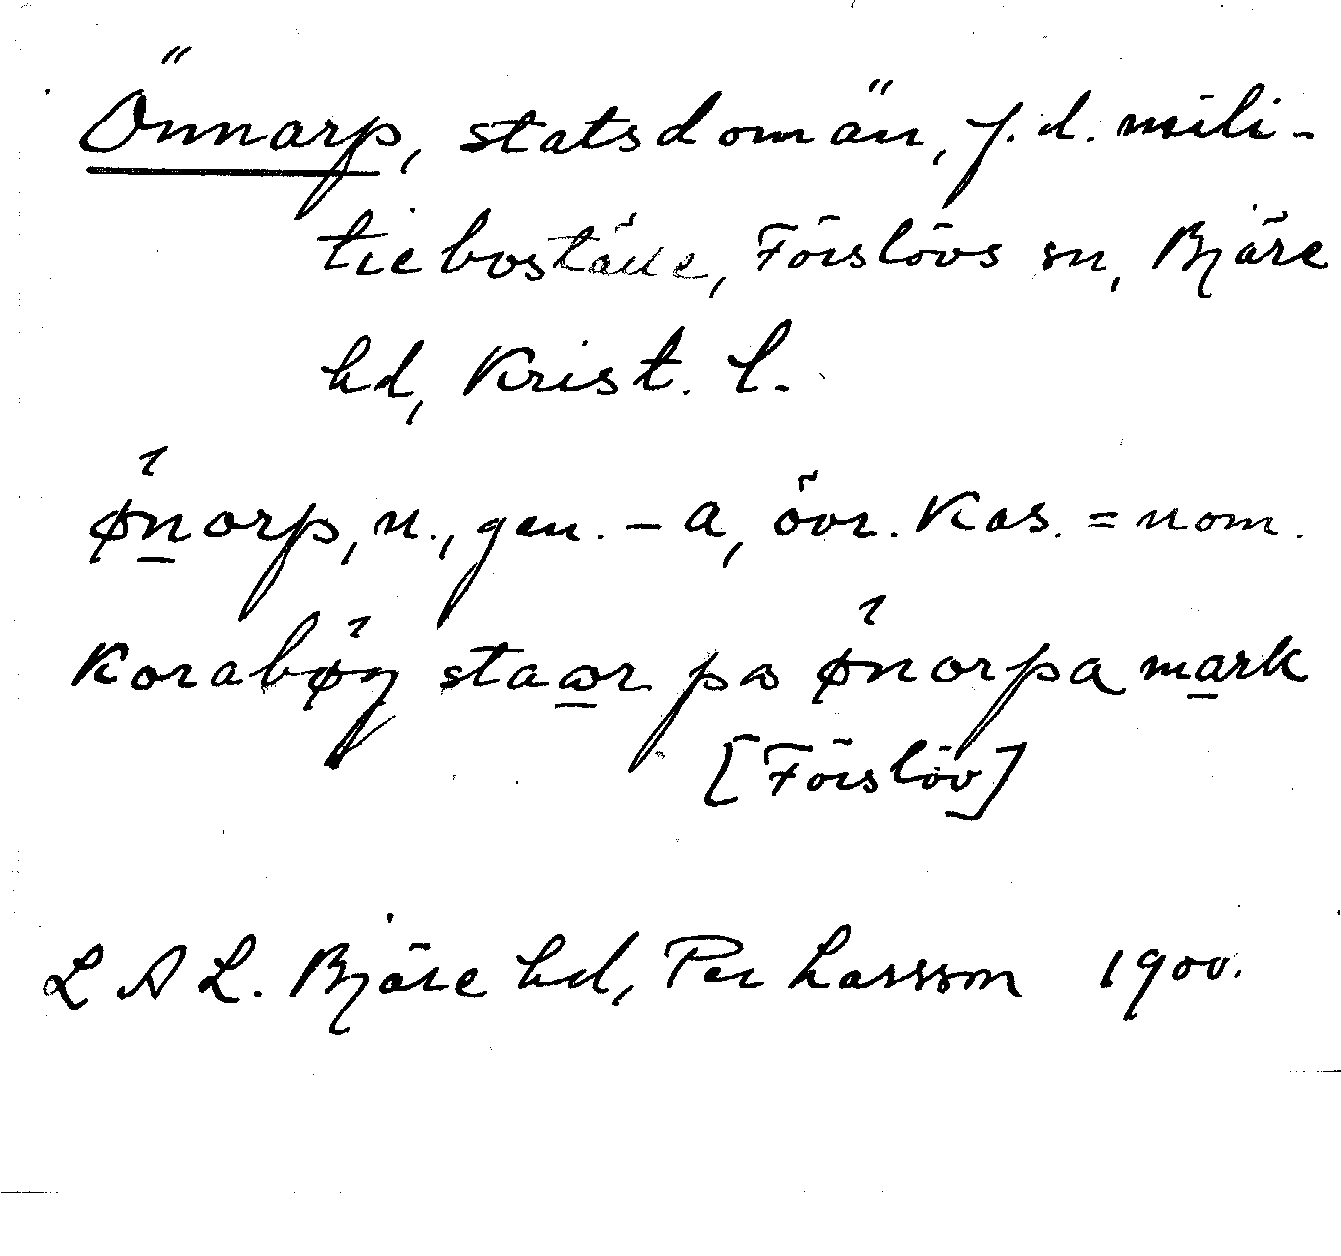 Önnarp, statsdomän, f.d. mili-
tieboställe, Förslövs sn, Bjäre
hd, Krist. l.
øn̲orp, n., gen. -a, övr. kas. = nom.
korabøg staa̲r pa ønorpa ma̲rk
[Förslöv]
LAL. Bjäre hd, Per Larsson 1900.